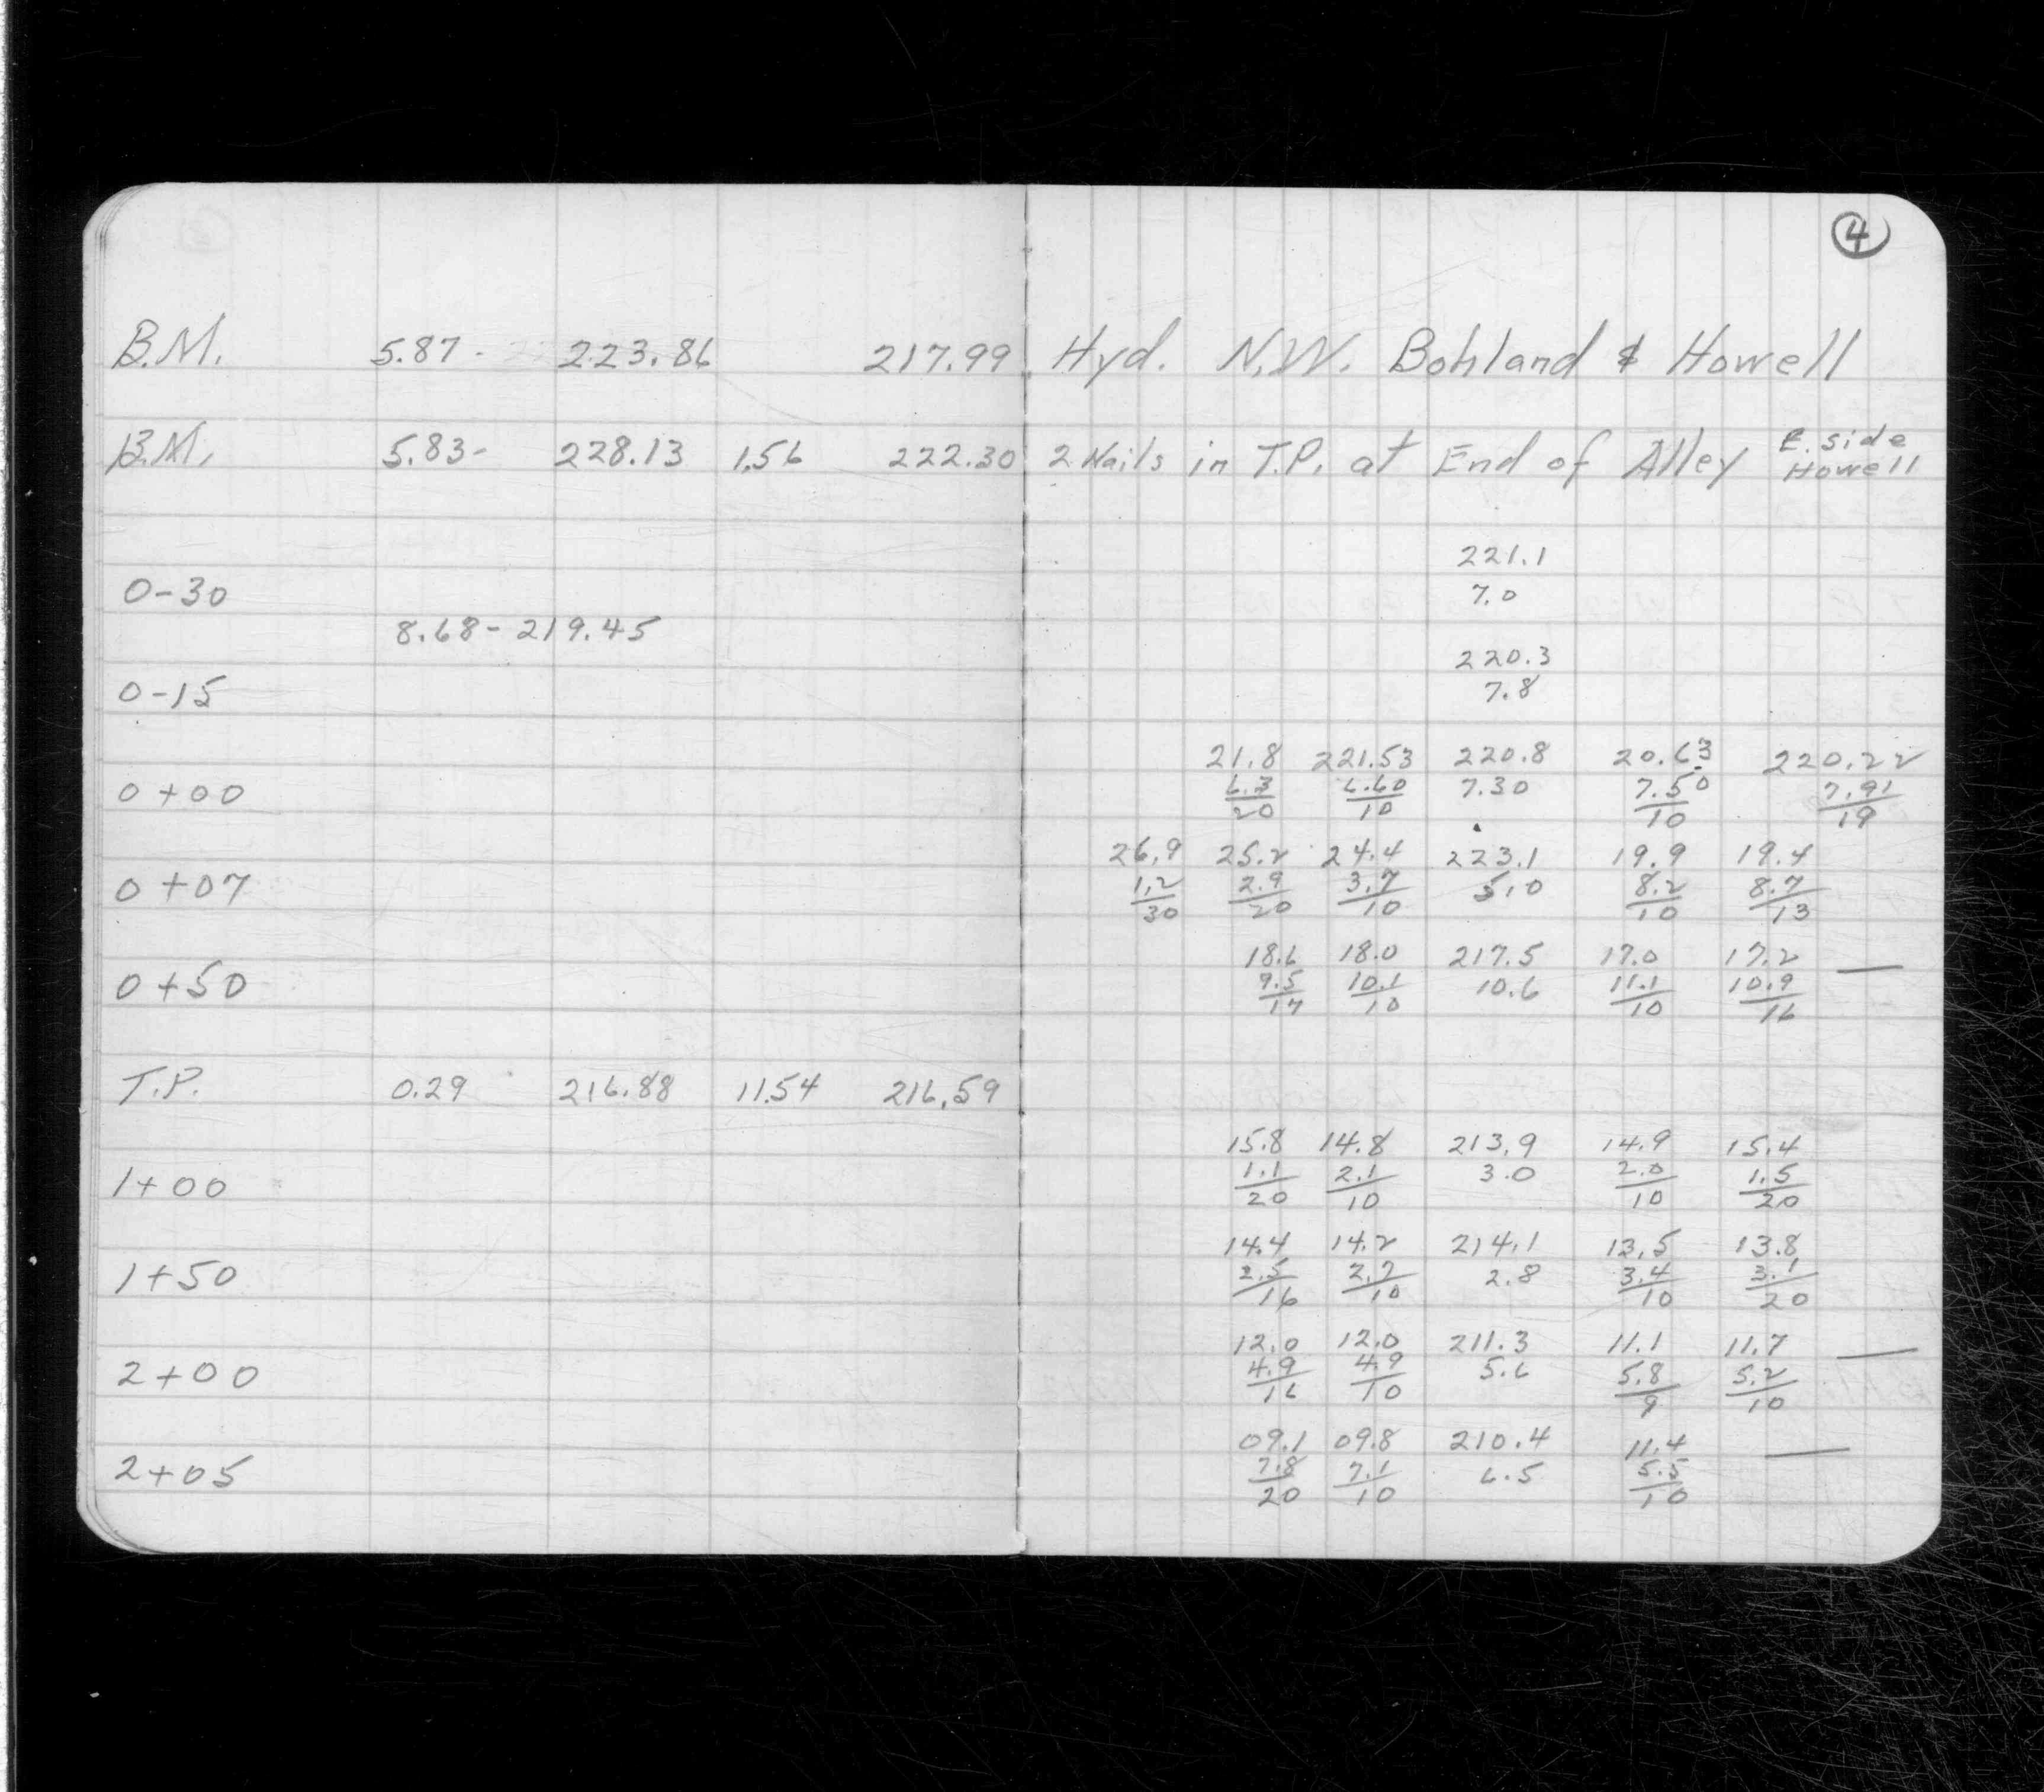 4
B.M. 5.87 - 223.86 217.99 Hyd. N.W. Bohland & Howell
B.M. 5.83 - 228.13 1.56 222.30 2 Nails in T.P. at End of Alley E. side Howell
221.1
0-30 7.0
8.68 - 219.45
220.3
0-15 7.8
21.8 221.53 220.8 20.63 220.22
0+00 6.3 6.60 7.30 7.50 7.91
20 10 10 19
26.9 25.2 24.4 223.1 19.9 19.4
0+07 1.2 2.9 3.7 5.0 8.2 8.7
30 20 10 10 13
18.6 18.0 217.5 17.0 17.2 —
0+50 9.5 10.1 10.6 11.1 10.9
17 10 10 16
T.P. 0.29 216.88 11.54 216.59
15.8 14.8 213.9 14.9 15.4
1+00 1.1 2.1 3.0 2.0 1.5
20 10 10 20
14.4 14.2 214.1 13.5 13.8
1+50 2.5 2.7 2.8 3.4 3.1
16 10 10 20
12.0 12.0 211.3 11.1 11.7 —
2+00 4.9 4.9 5.6 5.8 5.2
16 10 9 10
09.1 09.8 210.4 11.4 —
2+05 7.8 7.1 6.5 5.5
20 10 10